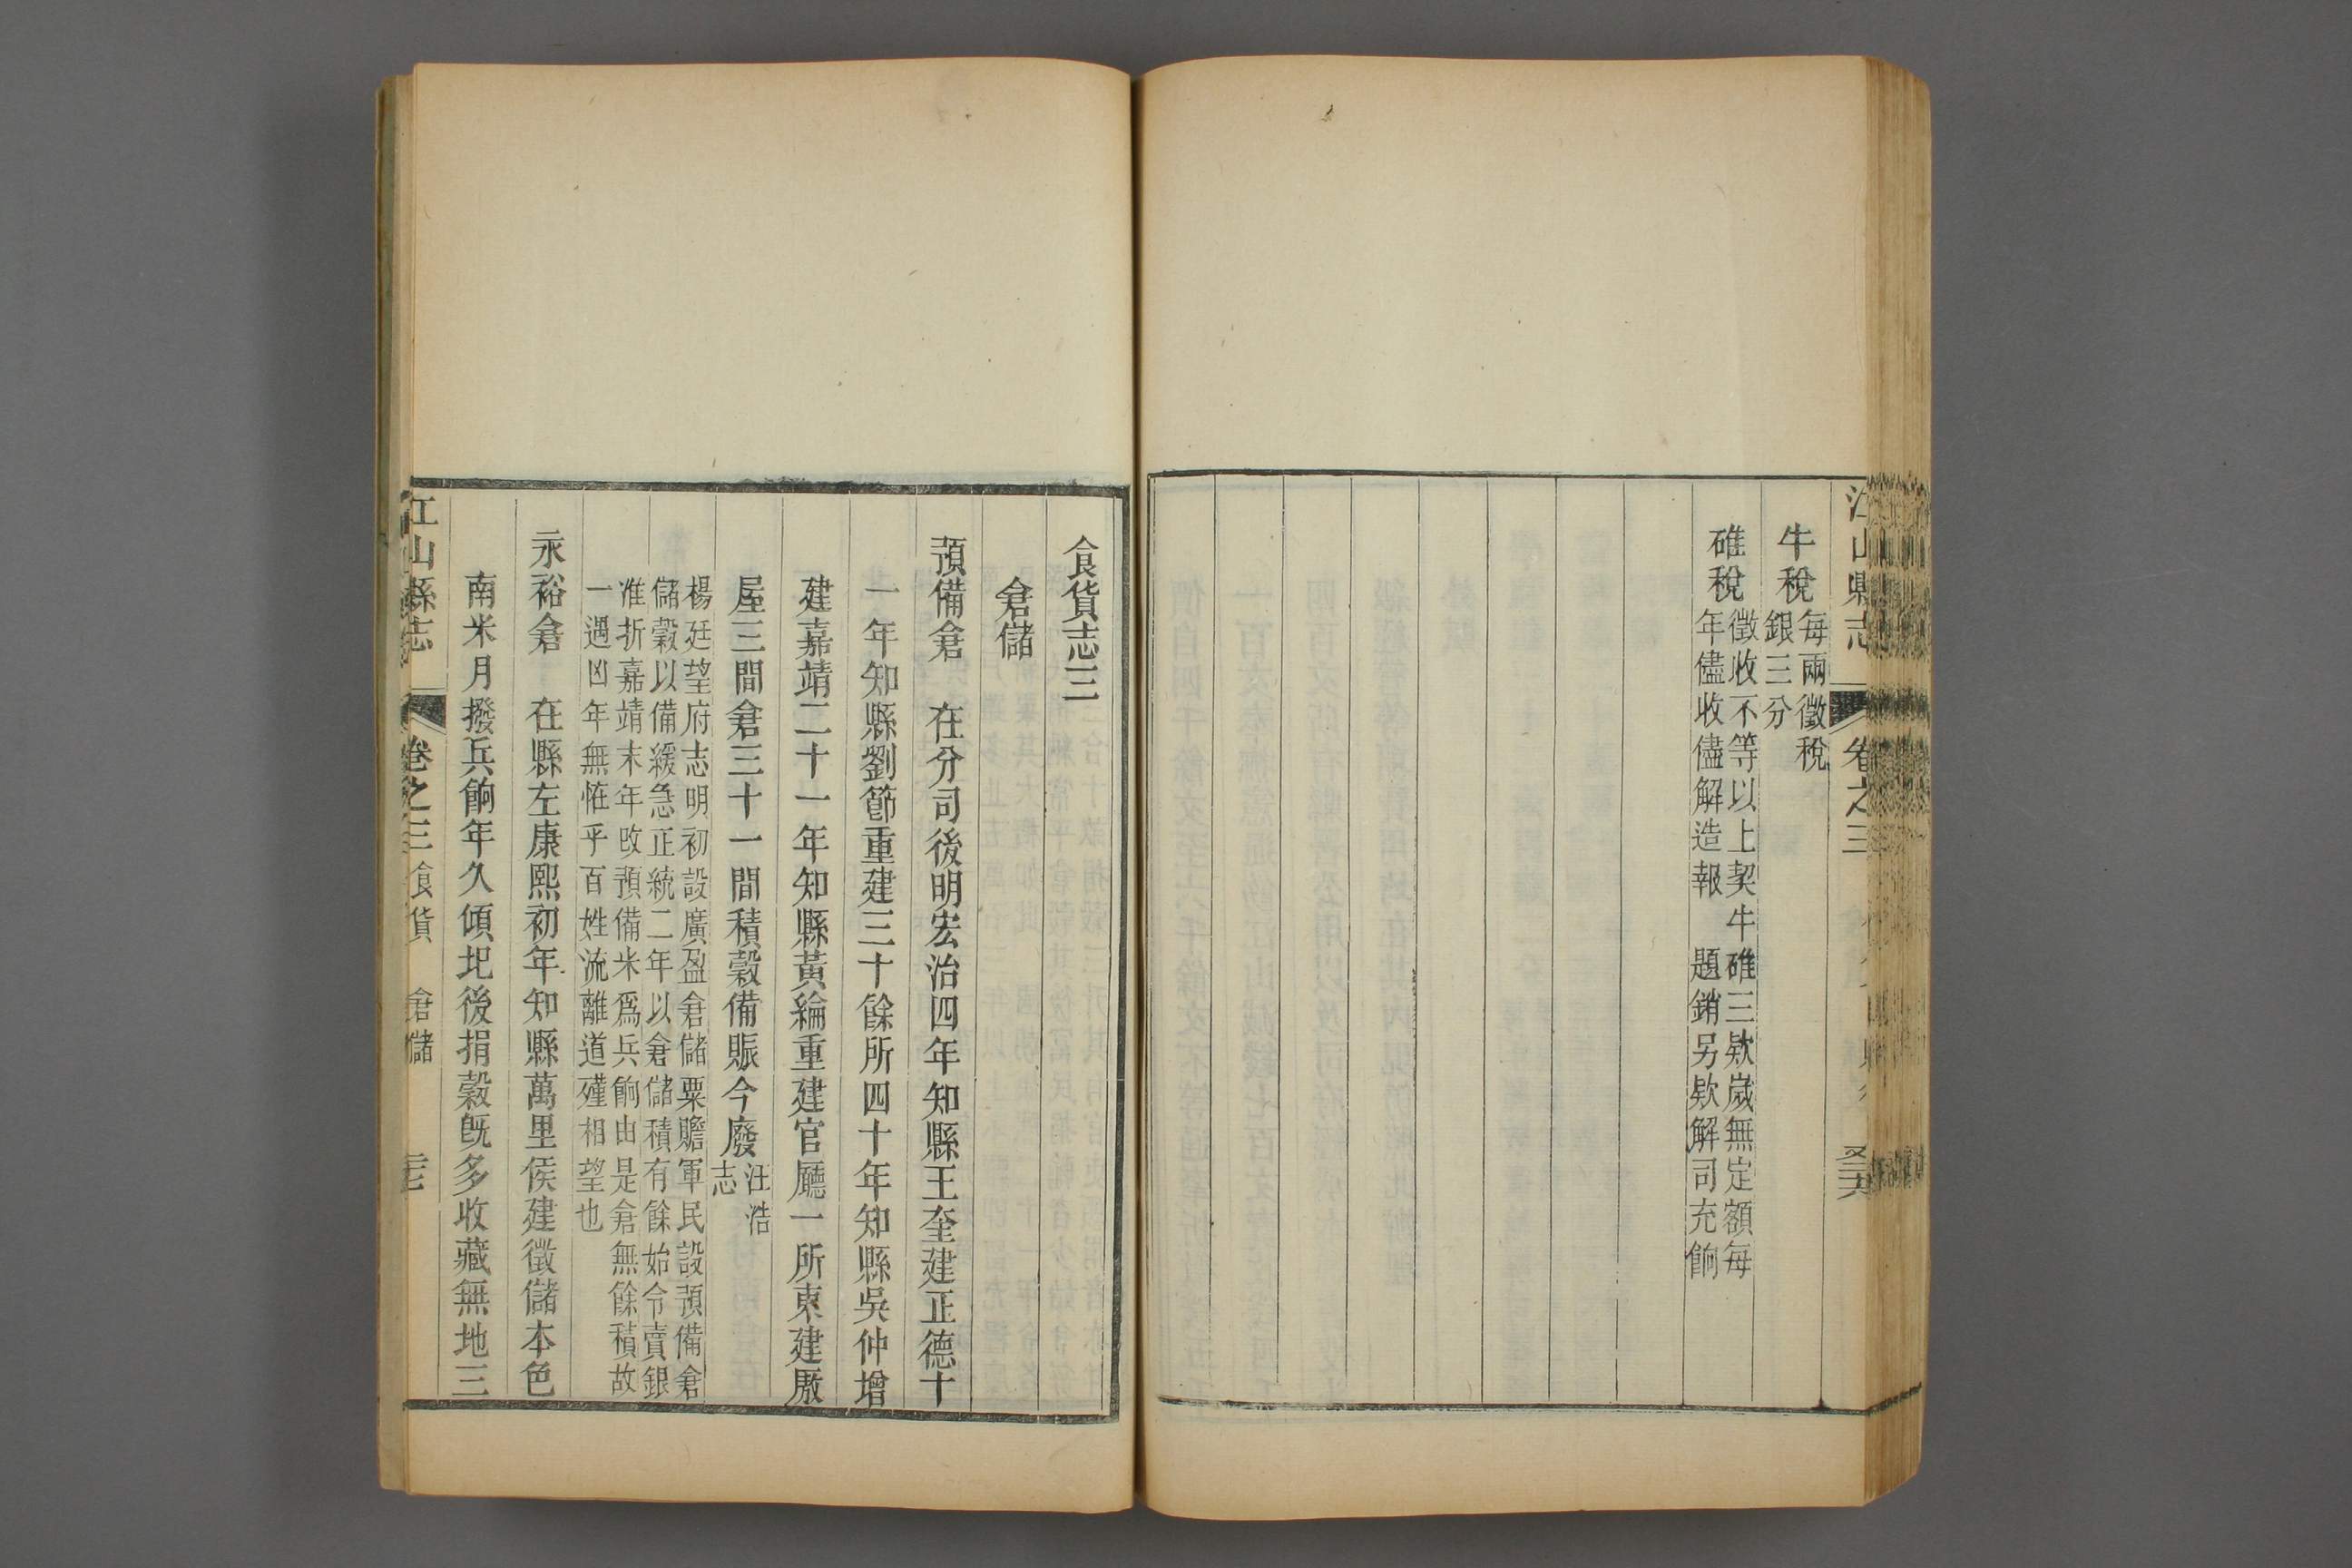 江山縣志
卷之三
牛稅
每兩徵稅
銀三分
碓稅
徵收不等以上契牛碓三欵歲無定額每
年儘收儘解造報　題銷另欵解司充餉
食貨志三
倉儲
預備倉　在分司後明宏治四年知縣王奎建正德十
一年知縣劉節重建三十餘所四十年知縣吳仲增
建嘉靖二十一年知縣黃綸重建官廳一所東建厫
屋三間倉三十一間積穀備賑今廢
汪浩
志
楊廷望府志明初設廣盈倉儲粟贍軍民設預備倉
儲穀以備緩急正統二年以倉儲積有餘始令賣銀
准折嘉靖末年攺預備米爲兵餉由是倉無餘積故
一遇凶年無恠乎百姓流離道殣相望也
永裕倉　在縣左康熙初年知縣萬里侯建徵儲本色
南米月撥兵餉年久傾圯後捐穀旣多收藏無地三
江山縣志
卷之三
食貨
倉儲